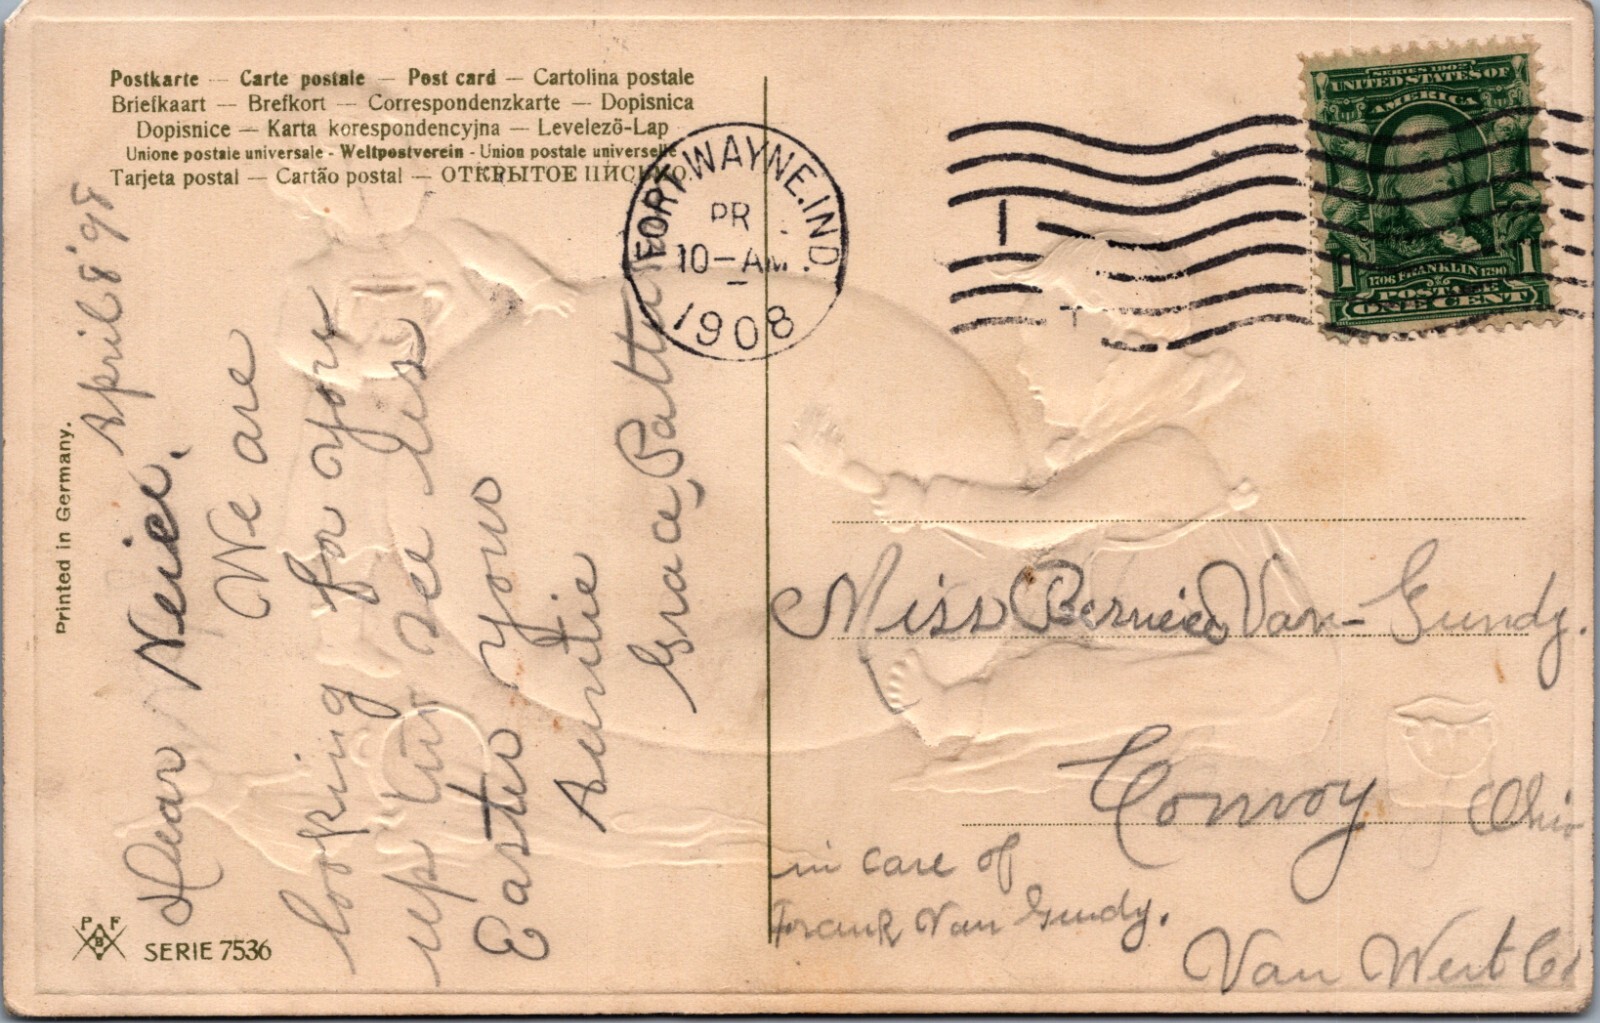 Postkarte — Carte postale — Post card — Cartolina postale
Briefkaart — Brefkort — Correspondenzkarte — Dopisnica
Dopisnice — Karta korespondencyjna — Levelező-Lap
Unione postale universale - Weltpostverein - Union postale universelle
Tarjeta postal — Cartão postal — ОТКРЫТОЕ ПИСЬМО.
FORT WAYNE. IND.
PR
10-AM.
1908
SERIES 1902
UNITED STATES OF
AMERICA
1 1
1706 FRANKLIN 1790
POSTAGE
ONE CENT
Printed in Germany.
April 8 '98
Dear Neice.
We are
looking for you
up to see us
Easter your
Auntie
Grace Patter
Miss Berniece Van-Gundy.
Convoy Ohio
in care of
Frank Van Gundy.
Van Wert Co
P F
B
SERIE 7536